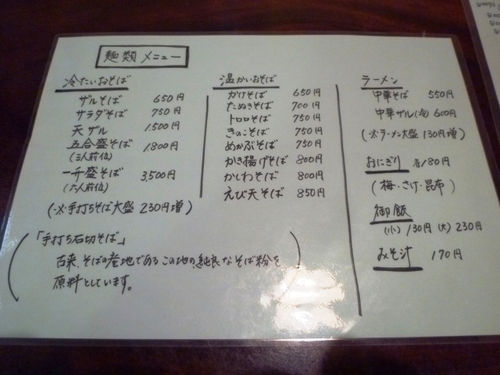 麺類メニュー
冷たいおそば
ザルそば 650円
サラダそば 750円
天ザル 1500円
五合盛そば 1800円
(三人前位)
一升盛そば 3,500円
(六人前位)
(※手打ちそば大盛 230円増)
温かいおそば
かけそば 650円
たぬきそば 700円
トロロそば 750円
きのこそば 750円
めかぶそば 750円
かき揚げそば 800円
かしわそば 800円
えび天そば 850円
ラーメン
中華そば 550円
中華ザル(冷) 600円
(※ラーメン大盛 130円増)
おにぎり 各180円
(梅・さけ・昆布)
御飯
(小) 130円 (大) 230円
みそ汁 170円
「手打ち石切そば」
古来、そばの産地であるこの地の純良なそば粉を
原料としています。